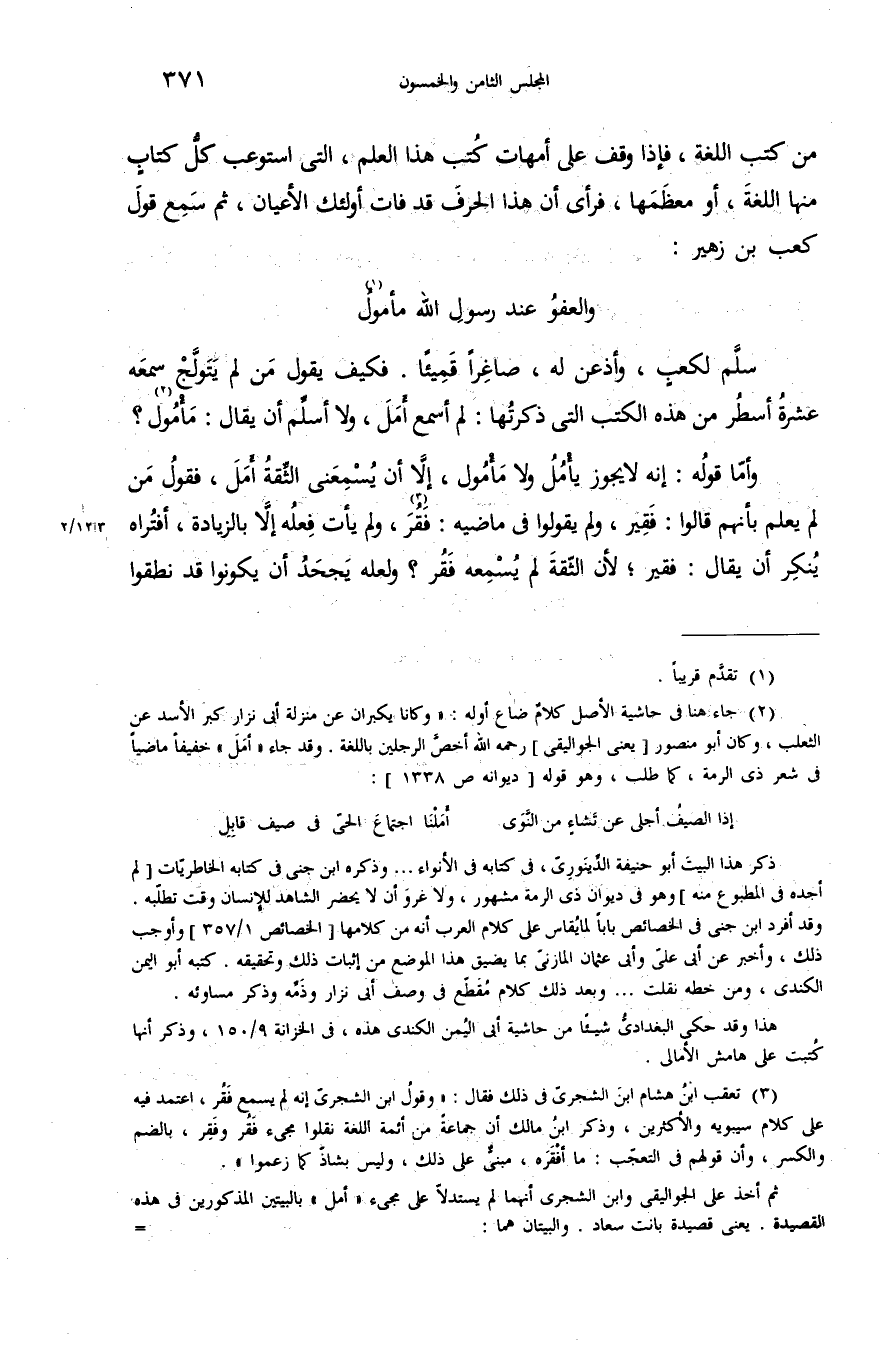 المجلس الثامن والخمسون ٣٧١
من كتب اللغة ، فإذا وقف على أمهات كُتب هذا العلم ، التى استوعب كلُّ كتابٍ
منها اللغةَ ، أو معظَمَها ، فرأى أن هذا الحرفَ قد فات أولئك الأعيان ، ثم سَمِع قولَ
كعب بن زهير :
والعفوُ عند رسولِ الله مأمولُ(١)
سلَّم لكعبٍ ، وأذعن له ، صاغِراً قَمِيئًا . فكيف يقول مَن لم يَتَولَّجْ سمعَه
عشرةُ أسطُر من هذه الكتب التى ذكرتُها : لم أسمع أَمَلَ ، ولا أسلِّم أن يقال : مَأْمُول(٢) ؟
وأمّا قولُه : إنه لايجوز يأْمُلُ ولا مَأْمُول ، إلَّا أن يُسْمِعَنى الثِّقةُ أَمَلَ ، فقولُ مَن
لم يعلم بأنهم قالوا : فَقِير ، ولم يقولوا فى ماضيه : فَقُرَ(٣) ، ولم يأت فِعلُه إلَّا بالزيادة ، أفتُراه
٢/١٢٣
يُنكِر أن يقال : فقير ؛ لأن الثّقةَ لم يُسْمِعه فَقُر ؟ ولعله يَجحَدُ أن يكونوا قد نطقوا
(١) تقدَّم قريباً .
(٢) جاء هنا فى حاشية الأصل كلامٌ ضاع أوله : « وكانا يكبران عن منزلة أبى نزار كبر الأسد عن
الثعلب ، وكان أبو منصور [ يعنى الجواليقى ] رحمه الله أخصَّ الرجلين باللغة . وقد جاء « أمَلَ » خفيفاً ماضياً
فى شعر ذى الرمة ، كما طلب ، وهو قوله [ ديوانه ص ١٣٣٨ ] :
إذا الصيفُ أجلى عن تَشاءٍ من النَّوَى أَمَلْنَا اجتماعَ الحىّ فى صيف قابِلِ
ذكر هذا البيتَ أبو حنيفة الدِّينَورِىّ ، فى كتابه فى الأنواء ... وذكره ابن جنى فى كتابه الخاطريّات [ لم
أجده فى المطبوع منه ] وهو فى ديوان ذى الرمة مشهور ، ولا غروَ أن لا يحضر الشاهد للإنسان وقت تطلّبه .
وقد أفرد ابن جنى فى الخصائص باباً لمايُقاس على كلام العرب أنه من كلامها [ الخصائص ٣٥٧/١ ] وأوجب
ذلك ، وأخبر عن أبى علىّ وأبى عثمان المازنىّ بما يضيق هذا الموضع من إثبات ذلك وتحقيقه . كتبه أبو اليمن
الكندى ، ومن خطه نقلت ... وبعد ذلك كلام مُقَطّع فى وصف أبى نزار وذَمّه وذكر مساوئه .
هذا وقد حكى البغدادىُّ شيئًا من حاشية أبى اليُمن الكندى هذه ، فى الخزانة ١٥٠/٩ ، وذكر أنها
كُتبت على هامش الأمالى .
(٣) تعقب ابنُ هشام ابنَ الشجرىّ فى ذلك فقال : « وقولُ ابن الشجرىّ إنه لم يسمع فَقُر ، اعتمد فيه
على كلام سيبويه والأكثرين ، وذكر ابنُ مالك أن جماعةً من أئمة اللغة نقلوا مجىء فَقُر وفَقِر ، بالضم
والكسر ، وأن قولهم فى التعجّب : ما أفْقَرَه ، مبنىٌّ على ذلك ، وليس بشاذّ كما زعموا » .
ثم أخذ على الجواليقى وابن الشجرى أنهما لم يستدلاّ على مجىء « أمل » بالبيتين المذكورين فى هذه
القصيدة . يعنى قصيدة بانت سعاد . والبيتان هما : =